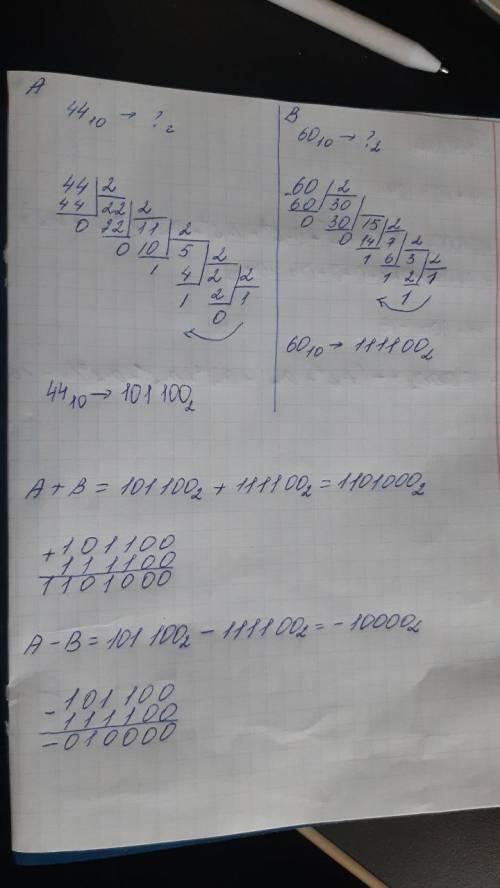 A
44₁₀ → ?₂
44 | 2
44 | 22 | 2
0 | 22 | 11 | 2
0 | 10 | 5 | 2
1 | 4 | 2 | 2
1 | 2 | 1
0
44₁₀ → 101100₂
B
60₁₀ → ?₂
-60 | 2
60 | 30
0 | 30 | 15 | 2
0 | 14 | 7 | 2
1 | 6 | 3 | 2
1 | 2 | 1
1
60₁₀ → 111100₂
A + B = 101100₂ + 111100₂ = 1101000₂
+101100
111100
1101000
A - B = 101100₂ - 111100₂ = -10000₂
-101100
111100
-010000